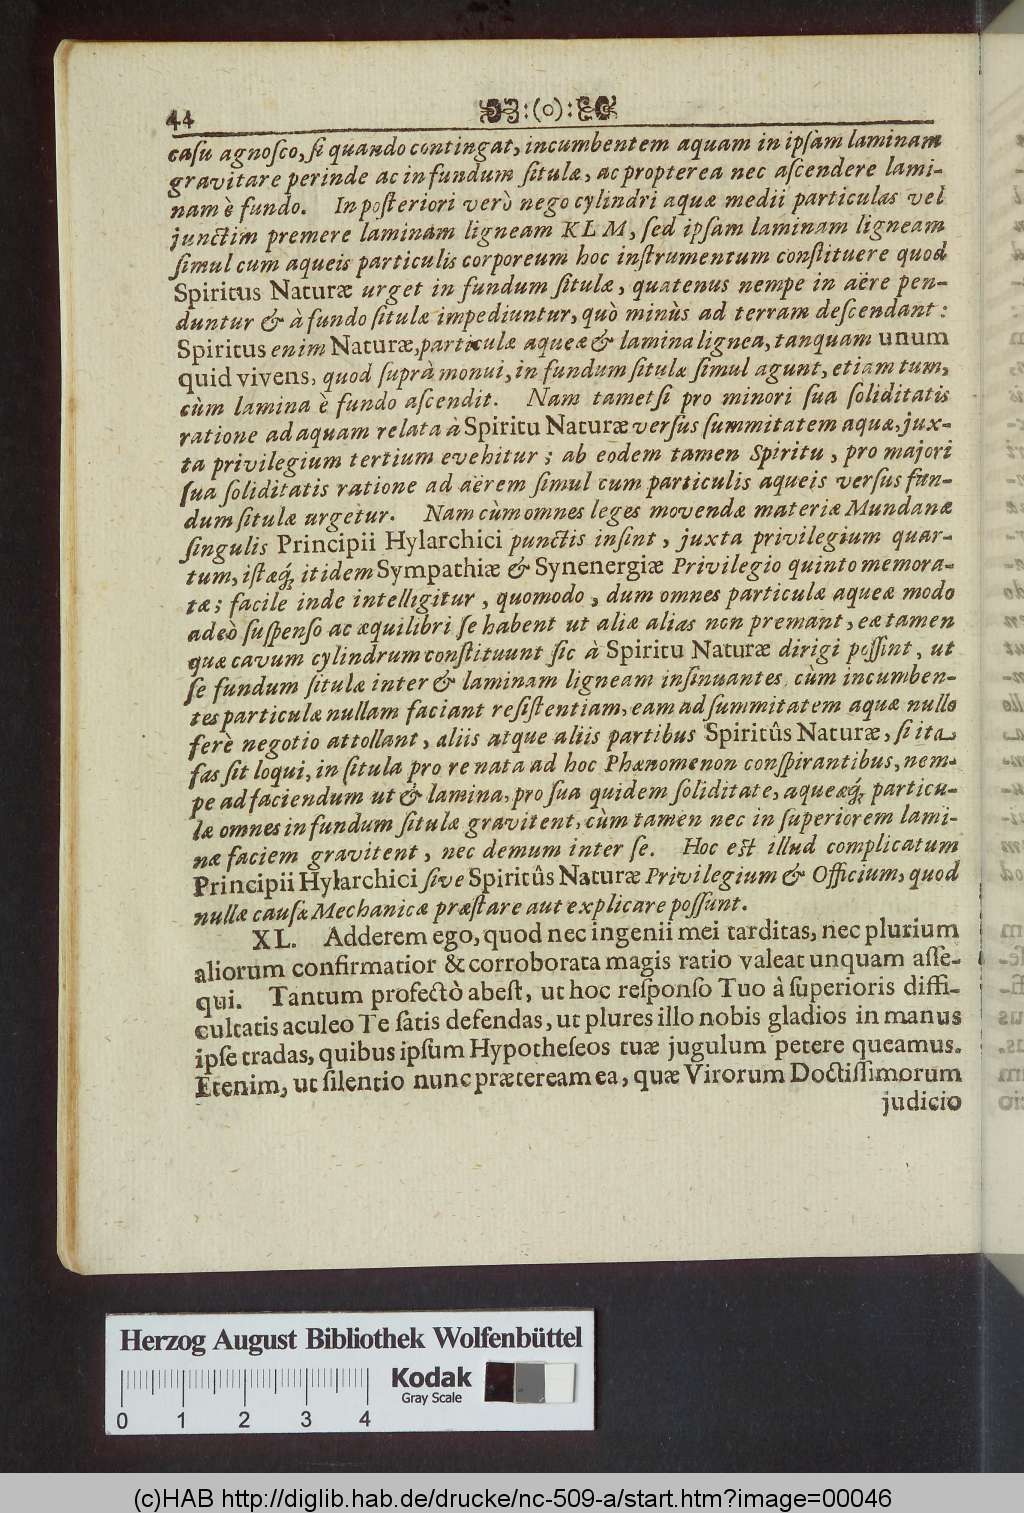 44 :(o):
casu agnosco, si quando contingat, incumbentem aquam in ipsam laminam
gravitare perinde ac in fundum situlæ, ac propterea nec ascendere lami-
nam è fundo. In posteriori verò nego cylindri aquæ medii particulas vel
junctim premere laminam ligneam KLM, sed ipsam laminam ligneam
simul cum aqueis particulis corporeum hoc instrumentum constituere quod
Spiritus Naturæ urget in fundum situlæ, quatenus nempe in aëre pen-
duntur & à fundo situlæ impediuntur, quò minùs ad terram descendant:
Spiritus enim Naturæ, particulæ aqueæ & lamina lignea, tanquam unum
quid vivens, quod suprà monui, in fundum situlæ simul agunt, etiam tum,
cùm lamina è fundo ascendit. Nam tametsi pro minori sua soliditatis
ratione ad aquam relata à Spiritu Naturæ versus summitatem aquæ, jux-
ta privilegium tertium evehitur; ab eodem tamen Spiritu, pro majori
sua soliditatis ratione ad aërem simul cum particulis aqueis versus fun-
dum situlæ urgetur. Nam cùm omnes leges movendæ materiæ Mundanæ
singulis Principii Hylarchici punctis insint, juxta privilegium quar-
tum, istæq; itidem Sympathiæ & Synenergiæ Privilegio quinto memora-
tæ; facile inde intelligitur, quomodo, dum omnes particulæ aqueæ modo
adeò suspenso ac æquilibri se habent ut aliæ alias non premant, eæ tamen
quæ cavum cylindrum constituunt sic à Spiritu Naturæ dirigi possint, ut
se fundum situlæ inter & laminam ligneam insinuantes, cùm incumben-
tes particulæ nullam faciant resistentiam, eam ad summitatem aquæ nullo
ferè negotio attollant, aliis atque aliis partibus Spiritûs Naturæ, si ita
fas sit loqui, in situla pro re nata ad hoc Phænomenon conspirantibus, nem-
pe ad faciendum ut & lamina, pro sua quidem soliditate, aqueæq; particu-
læ omnes in fundum situlæ gravitent, cùm tamen nec in superiorem lami-
næ faciem gravitent, nec demum inter se. Hoc est illud complicatum
Principii Hylarchici sive Spiritûs Naturæ Privilegium & Officium, quod
nullæ causæ Mechanicæ præstare aut explicare possunt.
XL. Adderem ego, quod nec ingenii mei tarditas, nec plurium
aliorum confirmatior & corroborata magis ratio valeat unquam asse-
qui. Tantum profectò abest, ut hoc responso Tuo à superioris diffi-
cultatis aculeo Te satis defendas, ut plures illo nobis gladios in manus
ipse tradas, quibus ipsum Hypotheseos tuæ jugulum petere queamus.
Etenim, ut silentio nunc præteream ea, quæ Virorum Doctissimorum
judicio
Herzog August Bibliothek Wolfenbüttel
Kodak
Gray Scale
0 1 2 3 4
(c)HAB http://diglib.hab.de/drucke/nc-509-a/start.htm?image=00046